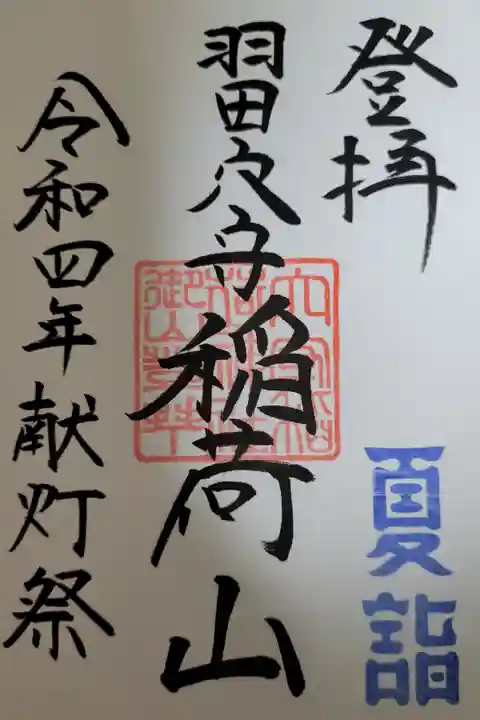 登拝
夏詣
羽田穴守稲荷山
令和四年献灯祭